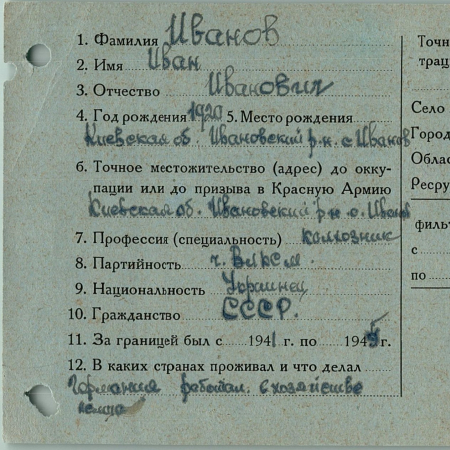 1. Фамилия Иванов
2. Имя Иван
3. Отчество Иванович
4. Год рождения 1920 5. Место рождения
Киевская об. Ивановский р-н. с. Иванов
6. Точное местожительство (адрес) до окку-
пации или до призыва в Красную Армию
Киевская об. Ивановский р-н. с. Иванов
7. Профессия (специальность) колхозник
8. Партийность ч. Влксм.
9. Национальность Украинец
10. Гражданство СССР.
11. За границей был с 1941 г. по 1945 г.
12. В каких странах проживал и что делал
Германия работал. в хозяйстве
немца
Точн
трац
Село
Город
Облас
Респу
фильт
с
по